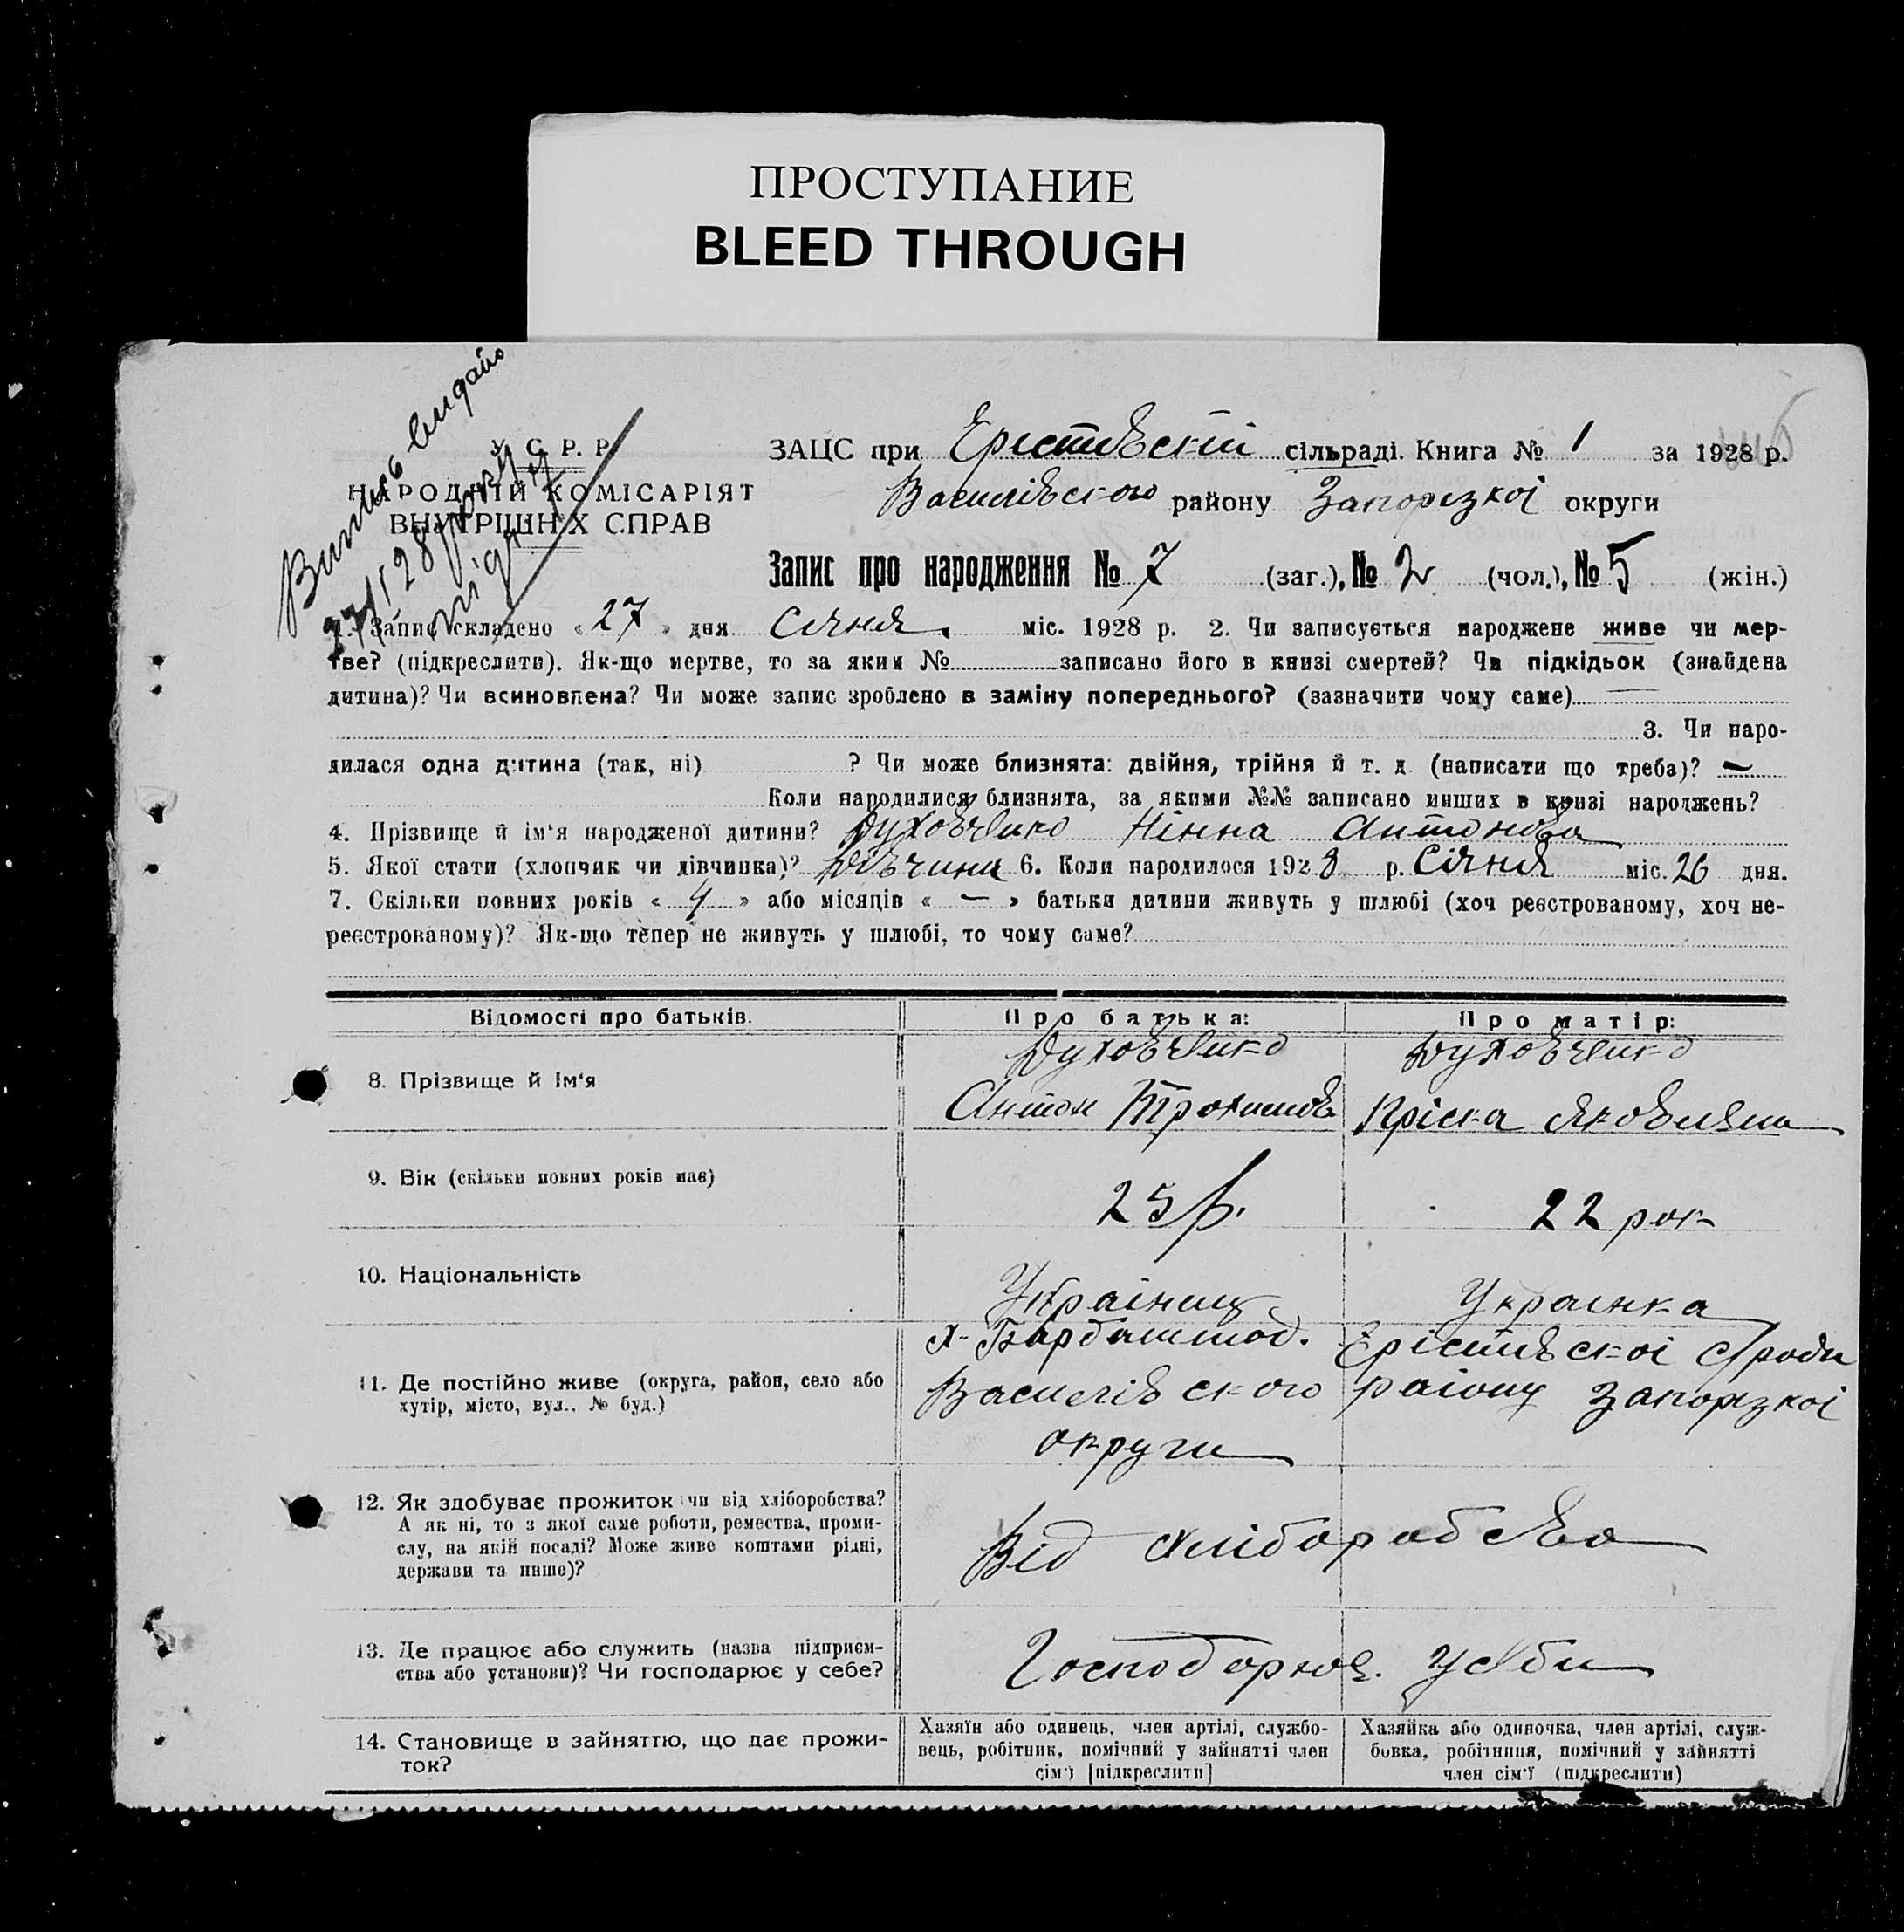 ПРОСТУПАНИЕ
BLEED THROUGH
Випись видано
27/I 28 року
У. С. Р. Р.
НАРОДНІЙ КОМІСАРІЯТ
ВНУТРІШНІХ СПРАВ
ЗАЦС при Ерістівскій сільраді. Книга № 1 за 1928 р.
Василівского району Запорізкоі округи
Запис про народження № 7 (заг.), № 2 (чол.), № 5 (жін.)
1. Запис складено « 27 » дня Січня міс. 1928 р. 2. Чи записується народжене живе чи мер-
тве? (підкреслити). Як-що мертве, то за яким № записано його в книзі смертей? Чи підкідьок (знайдена
дитина)? Чи всиновлена? Чи може запис зроблено в заміну попереднього? (зазначити чому саме) —
3. Чи наро-
дилася одна дитина (так, ні) ? Чи може близнята: двійня, трійня й т. д. (написати що треба)? —
Коли народилися близнята, за якими №№ записано инших в книзі народжень?
4. Прізвище й ім'я народженої дитини? Духовченко Нінна Антонова
5. Якої стати (хлопчик чи дівчинка)? Дівчина 6. Коли народилося 1928 р. Січня міс. 26 дня.
7. Скільки повних років « 4 » або місяців « — » батьки дитини живуть у шлюбі (хоч реєстрованому, хоч не-
реєстрованому)? Як-що тепер не живуть у шлюбі, то чому саме?
Відомості про батьків. Про батька: Про матір:
8. Прізвище й ім'я Духовченко Антон Трохимов Духовченко Пріска Яковлевна
9. Вік (скільки повних років має) 25 р. 22 рок
10. Національність Українец Українка
11. Де постійно живе (округа, район, село або
хутір, місто, вул., № буд.)
Ерістівскоі с/ради
Василівского району Запорізкоі
округи
12. Як здобуває прожиток: чи від хліборобства?
А як ні, то з якої саме роботи, ремества, проми-
слу, на якій посаді? Може живе коштами рідні,
держави та инше)?
Від хліборобства
13. Де працює або служить (назва підприєм-
ства або установи)? Чи господарює у себе?
Господорює у себи
14. Становище в зайняттю, що дає прожи-
ток?
Хазяїн або одинець, член артілі, службо-
вець, робітник, помічний у зайнятті член
сім'ї [підкреслити]
Хазяйка або одиночка, член артілі, служ-
бовка, робітниця, помічний у зайнятті
член сім'ї (підкреслити)